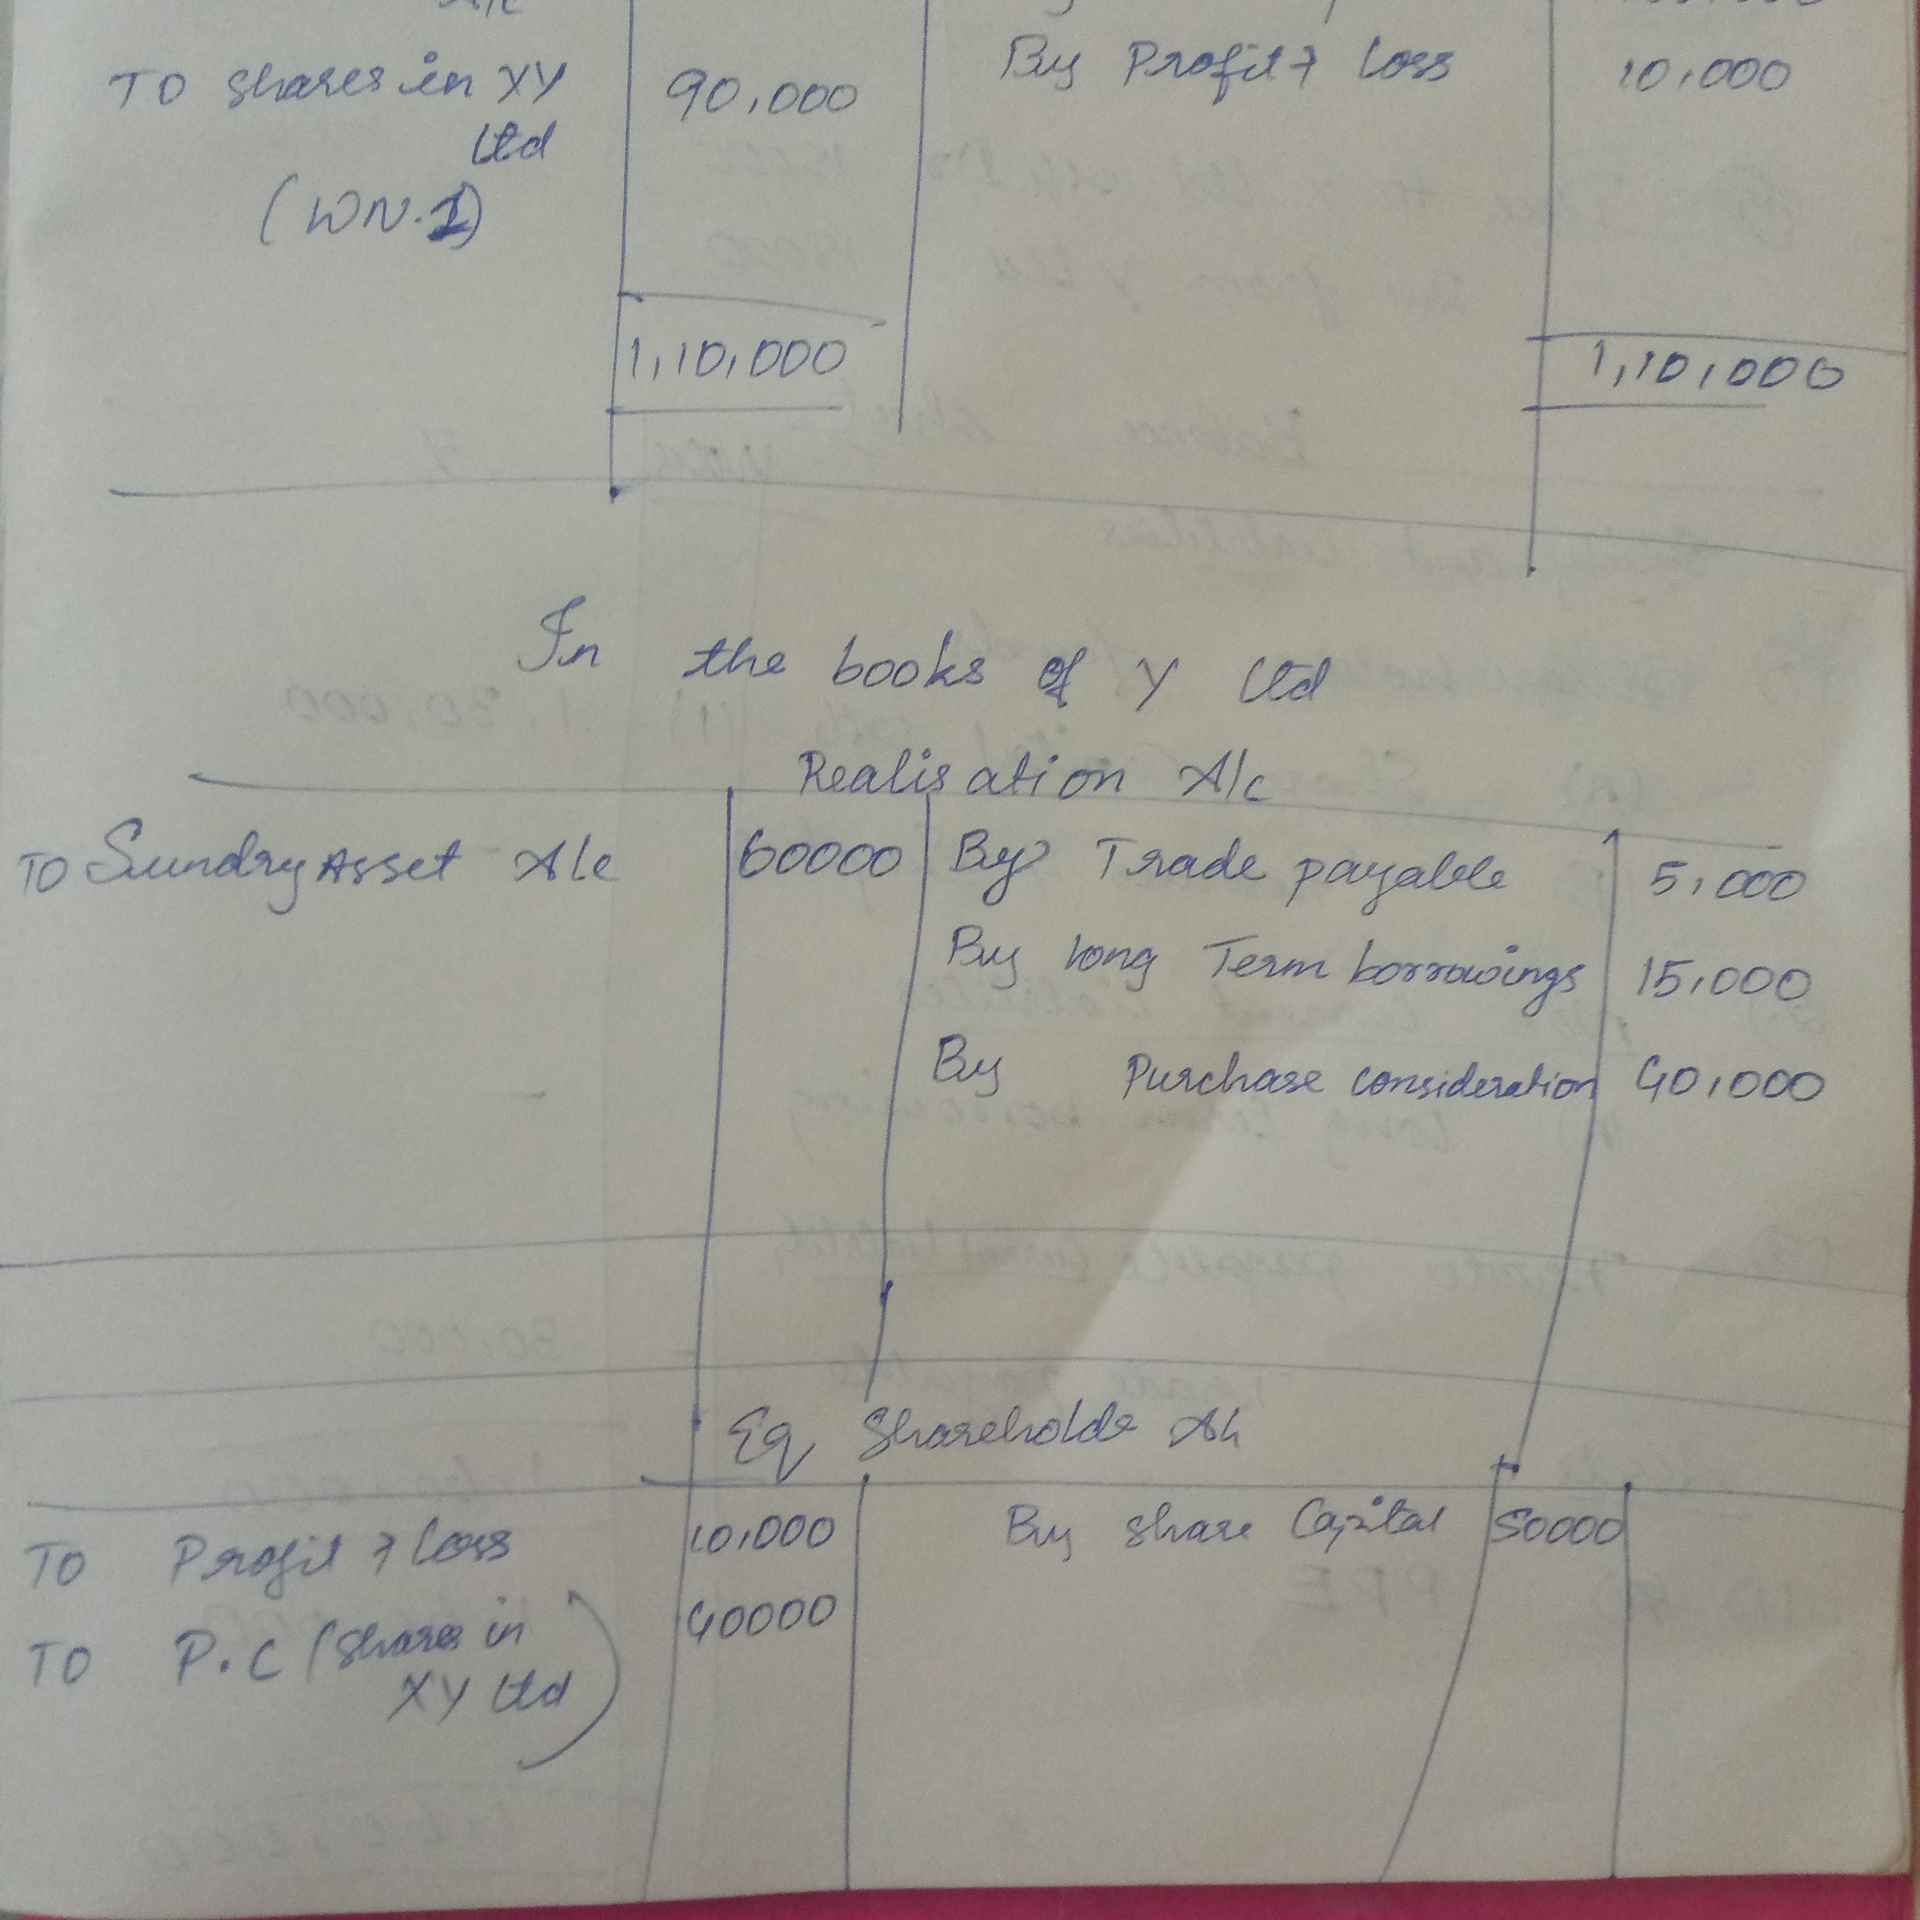 A/c
To Shares in XY 90,000 By Profit & Loss 10,000
Ltd
(WN.1)
1,10,000 1,10,000
In the books of Y Ltd
Realisation A/c
To Sundry Asset A/c 60000 By Trade payable 5,000
By long Term borrowings 15,000
By Purchase consideration 40,000
Eq Shareholds A/c
To Profit & Loss 10,000 By share Capital 50000
To P.C (Shares in 40000
XY Ltd)